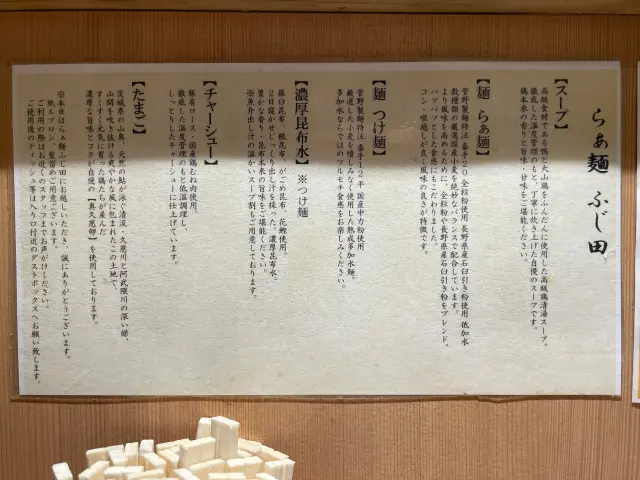 らぁ麺 ふじ田
【スープ】
高級食材である鴨と大山鶏をふんだんに使用した高級鶏清湯スープ。
徹底した温度管理のもと、丁寧に炊き上げた自慢のスープです。
鶏本来の香りと旨味・甘味をご堪能ください。
【麺 らぁ麺】
菅野製麺特注 番手20 全粒粉使用 長野県産石臼引き粉使用 低加水
数種類の厳選国産小麦を絶妙なバランスで配合しています。
より風味を高めるために、全粒粉や長野県産石臼引き粉をブレンド。
パツパツとした食感にもこだわりました。
コシ・喉越しが良く風味の良さが特徴です。
【麺 つけ麺】
菅野製麺特注 番手12 平 国産中力粉使用
厳選した小麦を惜しみなく使用した熟成多加水麺。
多加水ならではのツルモチ食感をお楽しみください。
【濃厚昆布水】※つけ麺
藤臼昆布、根昆布、がごめ昆布、花鰹使用。
2日寝かせじっくり出し汁を採った、濃厚昆布水。
豊かな香り・昆布本来の旨味をご堪能ください。
※魚介出し汁の温かいスープ割もご用意しております。
【チャーシュー】
豚肩ロース・国産鶏むね肉使用。
徹底した温度管理のもと低温調理し、
しっとりとしたチャーシューに仕上げています。
【たまご】
茨城県の山奥、天然の鮎が泳ぐ清流・久慈川と阿武隈川の深い緑、
山間を吹き抜ける爽やかな風に包まれたこの土地で、
すくすくと元気に育った鶏たちが産んだ
濃厚な旨味とコクが自慢の【奥久慈卵】を使用しております。
※本日はらぁ麺ふじ田にお越しいただき、誠にありがとうございます。
紙エプロン、髪留めご用意ございます。
ご利用の際はお近くのスタッフまでお声がけください。
ご使用後のティッシュ等は入り口付近のダストボックスへお願い致します。